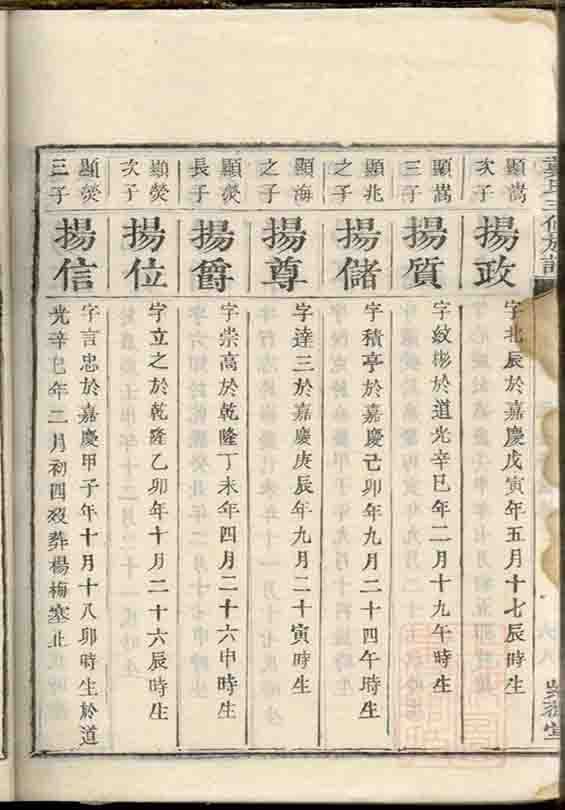 顯嵩
次子
揚政
字北辰於嘉慶戊寅年五月十七辰時生
顯嵩
三子
揚質
字紋彬於道光辛巳年二月十九午時生
顯兆
之子
揚儲
字積亭於嘉慶己卯年九月二十四午時生
顯海
之子
揚尊
字達三於嘉慶庚辰年九月二十寅時生
顯熒
長子
揚爵
字崇高於乾隆丁未年四月二十六申時生
顯熒
次子
揚位
字立之於乾隆乙卯年十月二十六辰時生
顯熒
三子
揚信
字言忠於嘉慶甲子年十月十八卯時生於道
光辛巳年二月初四歿葬楊梅塞止